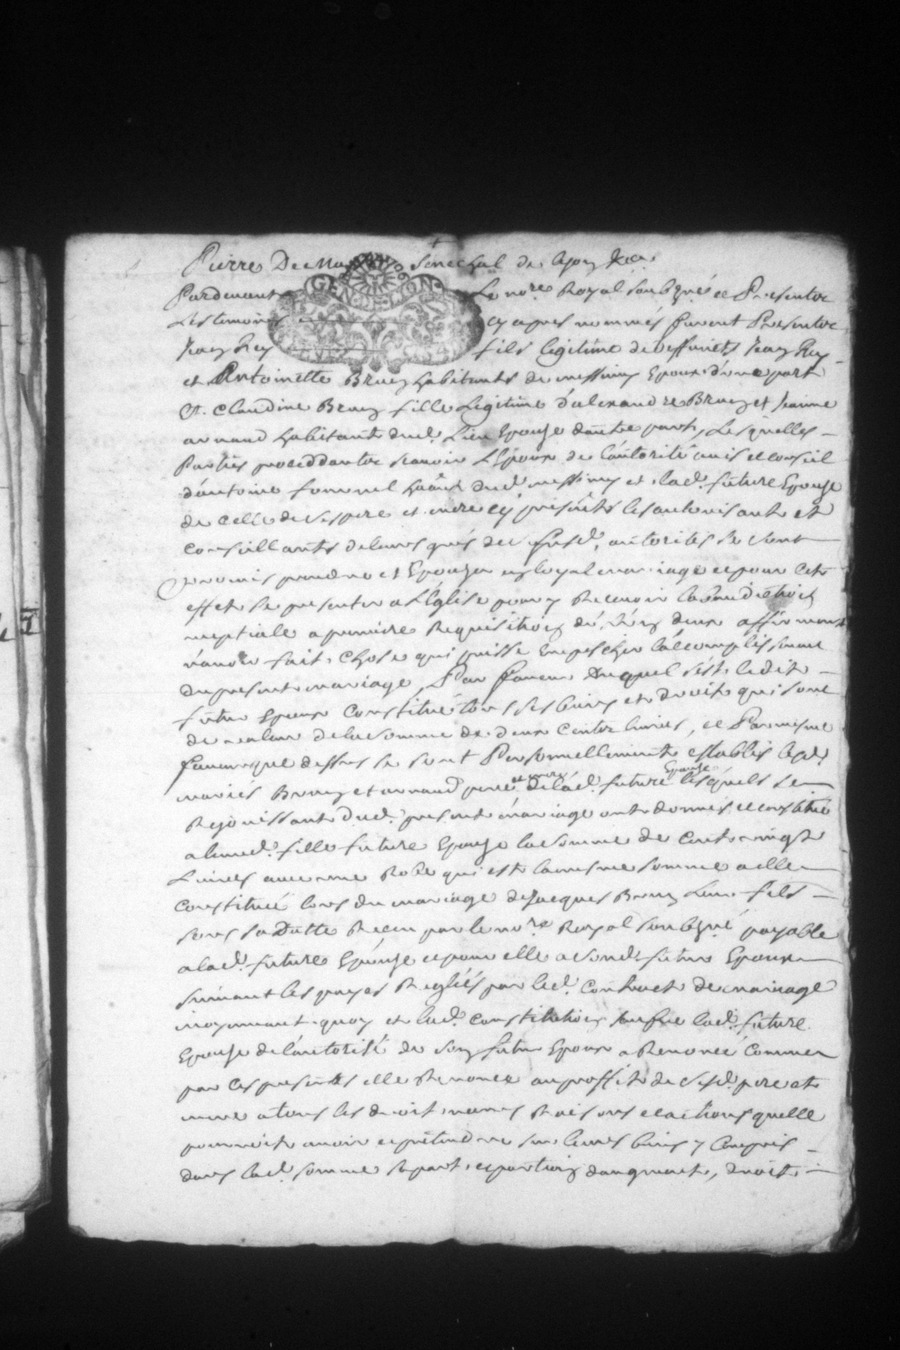 Pierre De senechal de
Pardevant Le no.re Royal soubz.né et Presentz
Les temoins cy apres nommés furent Presentz
Jean Rey fils legitime de deffunets Jean Rey
et Antoinette Brun habitants de messimy Epoux d'une part
Et Claudine Brun fille Legitime d'alexandre Brun et Jeanne
arnaud habitants dud. Lieu Epouze d'autre part, Lesquelles
Parties proceddantes sçavoir L'Epoux de l'autorité avis et conseil
d'antoine dud. messimy et lad. future Epouze
de celle de ses pere et mere cy presents les autorisants et
conseillants de leurs grés autorités se sont
promis prendre et Epouzer en loyal mariage et pour cet
effet se presenter a L'Eglise pour y Recevoir la benediction
nuptiale a premiere Requisition de l'un deux affirmant
n'avoir fait chose qui puisse empescher l'accomplissement
du present mariage, Par faveur Duquel s'est ledit
futur Epoux constitué tous ses biens et droits qui sont
de valeur de la somme de deux centz livres, et Par mesme
faveur que dessus se sont Personnellement establis lesd.
mariés Brun et arnaud pere et mere de lad. future Epouze lesquels se
Rejouissants dud. present mariage ont donnés et constitué
a leurd. fille future Epouze la somme de cent vingt
Livres avec une Robe qui est la mesme somme a elle
constituée lors du mariage de Jacques Brun leur fils
sous sa Datte Receu par le no.re Royal soubz.né payable
a lad. future Epouze et pour elle a sond. futur Epoux
suivant les payes Reglés par led. contract de mariage
moyennant quoy et lad. constitution lad. future
Epouze de l'autorité de son futur Epoux a Renoncé comme
par ces presentes elle Renonce au proffit de sesd. pere et
mere a tous les droits noms Raisons et actions quelle
pourroit avoir et pretendre sur leurs biens y compris
dans lad. somme sa part et portion d'augment, droit